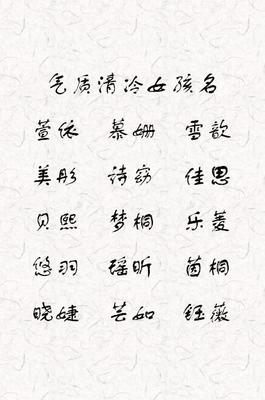 气质清冷女孩名
萱依 慕姗 雪歆
美彤 诗窈 佳思
贝熙 梦桐 乐菱
悠羽 瑶昕 茵桐
晓婕 芸如 钰薇